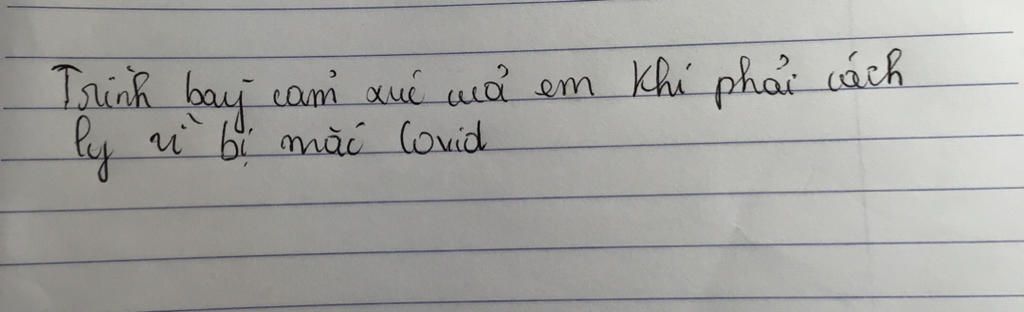 Trình bày cảm xúc của em khi phải cách
ly vì bị mắc Covid